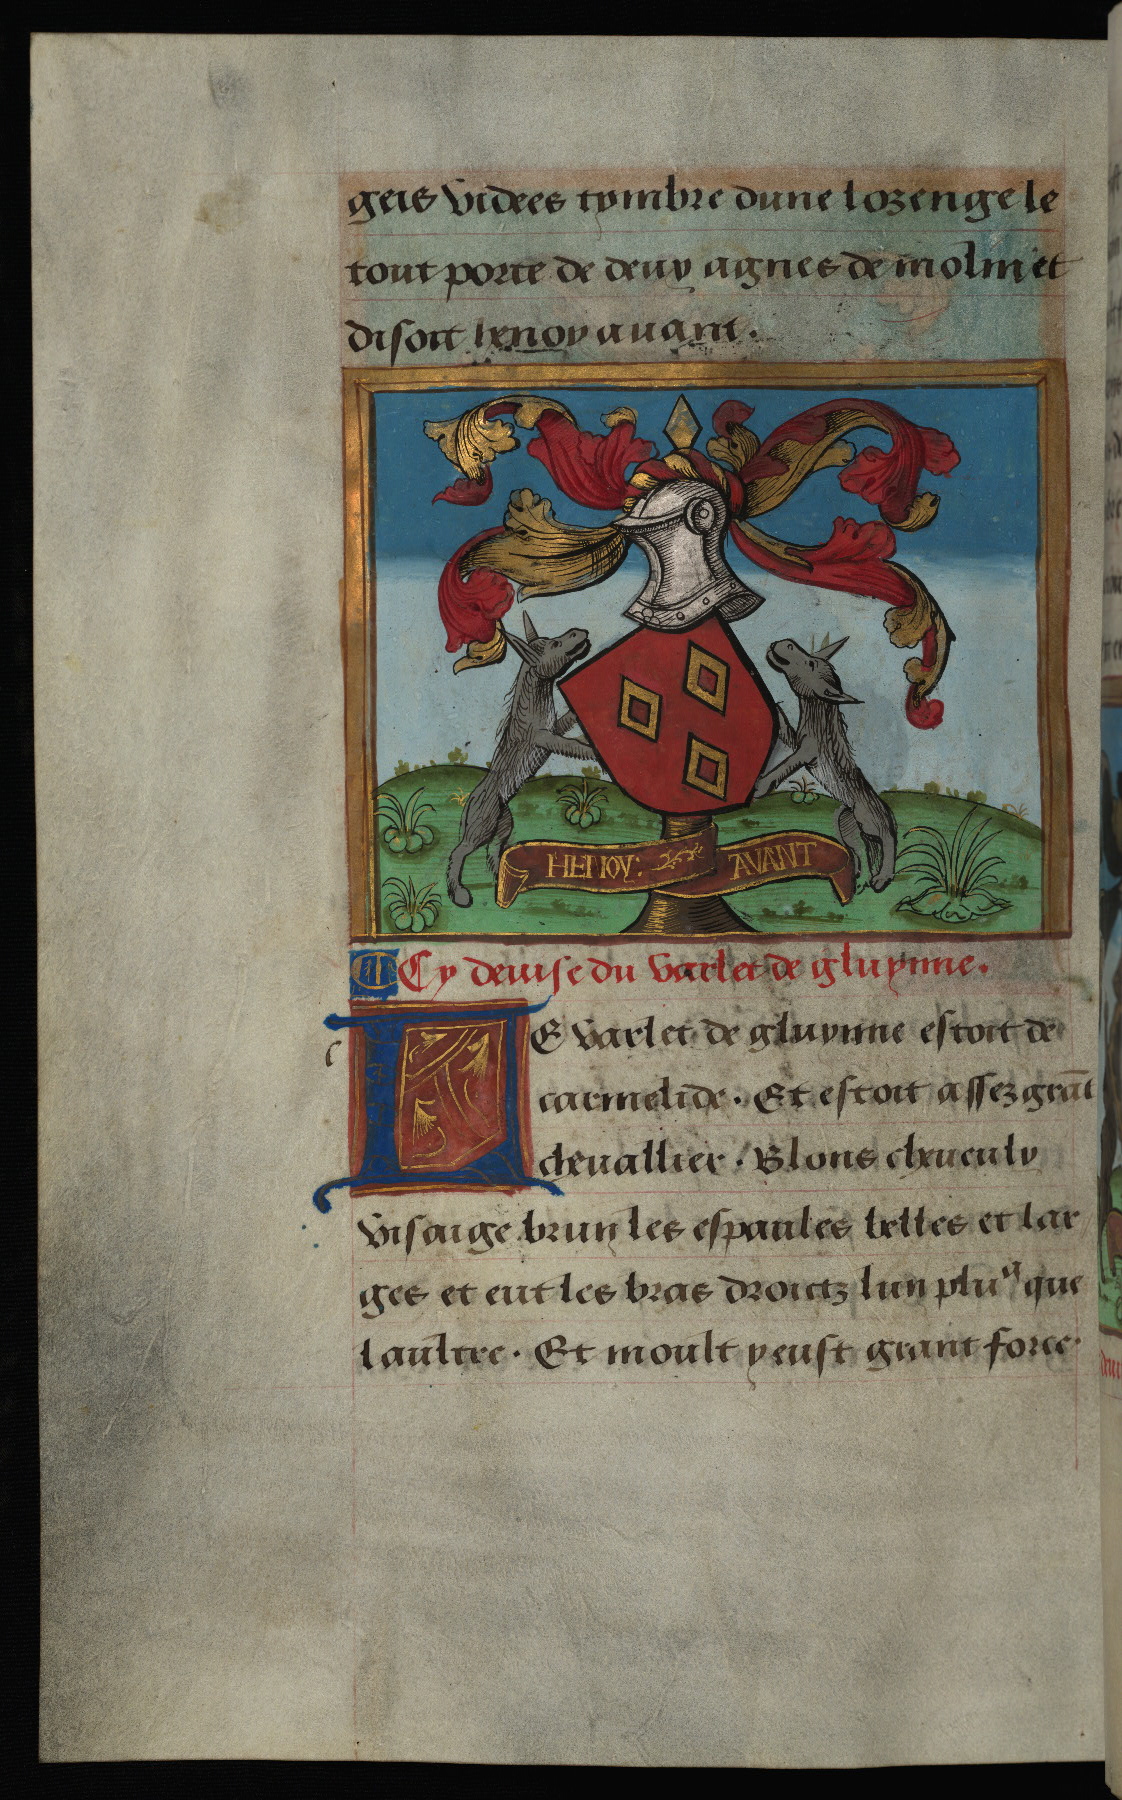 geis videes tymbre dune lozenge le
tout porte de deux agnes de molin et
disoit henoy auant.
HENOY: AVANT
Cy deuise du varlet de gluynne.
LE varlet de gluynne estoit de
carmelide. Et estoit assez grãt
cheuallier. Blons cheueulx
visaige brun les espaules belles et lar
ges et eut les bras droictz lun plus que
laultre. Et moult y eust grant force.